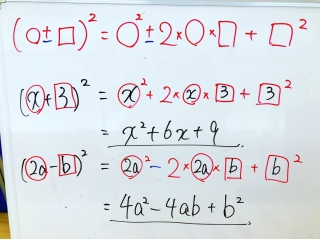 (○±□)² = ○² ± 2×○×□ + □²
(x+3)² = x² + 2×x×3 + 3²
= x²+6x+9
(2a-b)² = 2a² - 2×2a×b + b²
= 4a²-4ab+b²